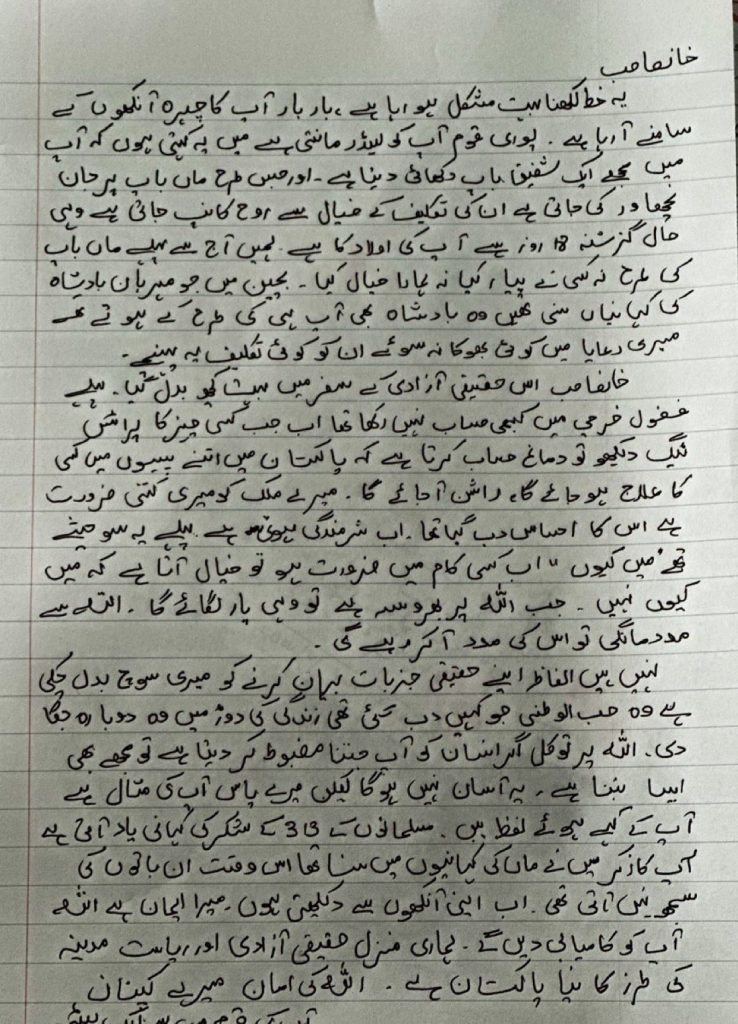 خانصاحب
یہ خط لکھنا بہت مشکل ہو رہا ہے، بار بار آپ کا چہرہ آنکھوں کے
سامنے آ رہا ہے۔ پوری قوم آپ کو لیڈر مانتی ہے میں یہ کہتی ہوں کہ آپ
میں مجھے ایک شفیق باپ دکھائی دیتا ہے۔ اور جس طرح ماں باپ پر جان
نچھاور کی جاتی ہے ان کی تکلیف کے خیال سے روح کانپ جاتی ہے وہی
حال گزشتہ 18 روز سے آپ کی اولاد کا ہے۔ ہمیں آج سے پہلے ماں باپ
کی طرح نہ کسی نے پیار کیا نہ ہمارا خیال کیا۔ بچپن میں جو مہربان بادشاہ
کی کہانیاں سنی تھیں وہ بادشاہ بھی آپ ہی کی طرح کے ہوتے تھے
میری رعایا میں کوئی بھوکا نہ سوئے ان کو کوئی تکلیف نہ پہنچے۔
خانصاحب اس حقیقی آزادی کے سفر میں بہت کچھ بدل گیا۔ پہلے
فضول خرچی میں کبھی حساب نہیں رکھا تھا اب جب کسی چیز کا پرائس
ٹیگ دیکھو تو دماغ حساب کرتا ہے کہ پاکستان میں اتنے پیسوں میں کسی
کا علاج ہو جائے گا، راشن آ جائے گا۔ میرے ملک کو میری کتنی ضرورت
ہے اس کا احساس دب گیا تھا۔ اب شرمندگی ہوتی ہے پہلے یہ سوچتے
تھے "میں کیوں" اب کسی کام میں ضرورت ہو تو خیال آتا ہے کہ میں
کیوں نہیں۔ جب اللہ پر بھروسہ ہے تو وہی پار لگائے گا۔ اللہ سے
مدد مانگی تو اس کی مدد آ کر رہے گی۔
نہیں ہیں الفاظ اپنے حقیقی جزبات بیان کرنے کو میری سوچ بدل چکی
ہے وہ حب الوطنی جو کہیں دب گئی تھی زندگی کی دوڑ میں وہ دوبارہ جگا
دی۔ اللہ پر توکل اگر انسان کو آپ جتنا مضبوط کر دیتا ہے تو مجھے بھی
ایسا بننا ہے۔ یہ آسان نہیں ہوگا لیکن میرے پاس آپ کی مثال ہے
آپ کے کہے ہوئے لفظ ہیں۔ مسلمانوں کے 313 کے لشکر کی کہانی یاد آتی ہے
جس کا ذکر میں نے ماں کی کہانیوں میں سنا تھا اس وقت ان باتوں کی
سمجھ نہیں آتی تھی۔ اب اپنی آنکھوں سے دیکھتی ہوں۔ میرا ایمان ہے اللہ
آپ کو کامیابی دیں گے۔ ہماری منزل حقیقی آزادی اور ریاست مدینہ
کی طرز کا نیا پاکستان ہے۔ اللہ کی امان میرے کپتان